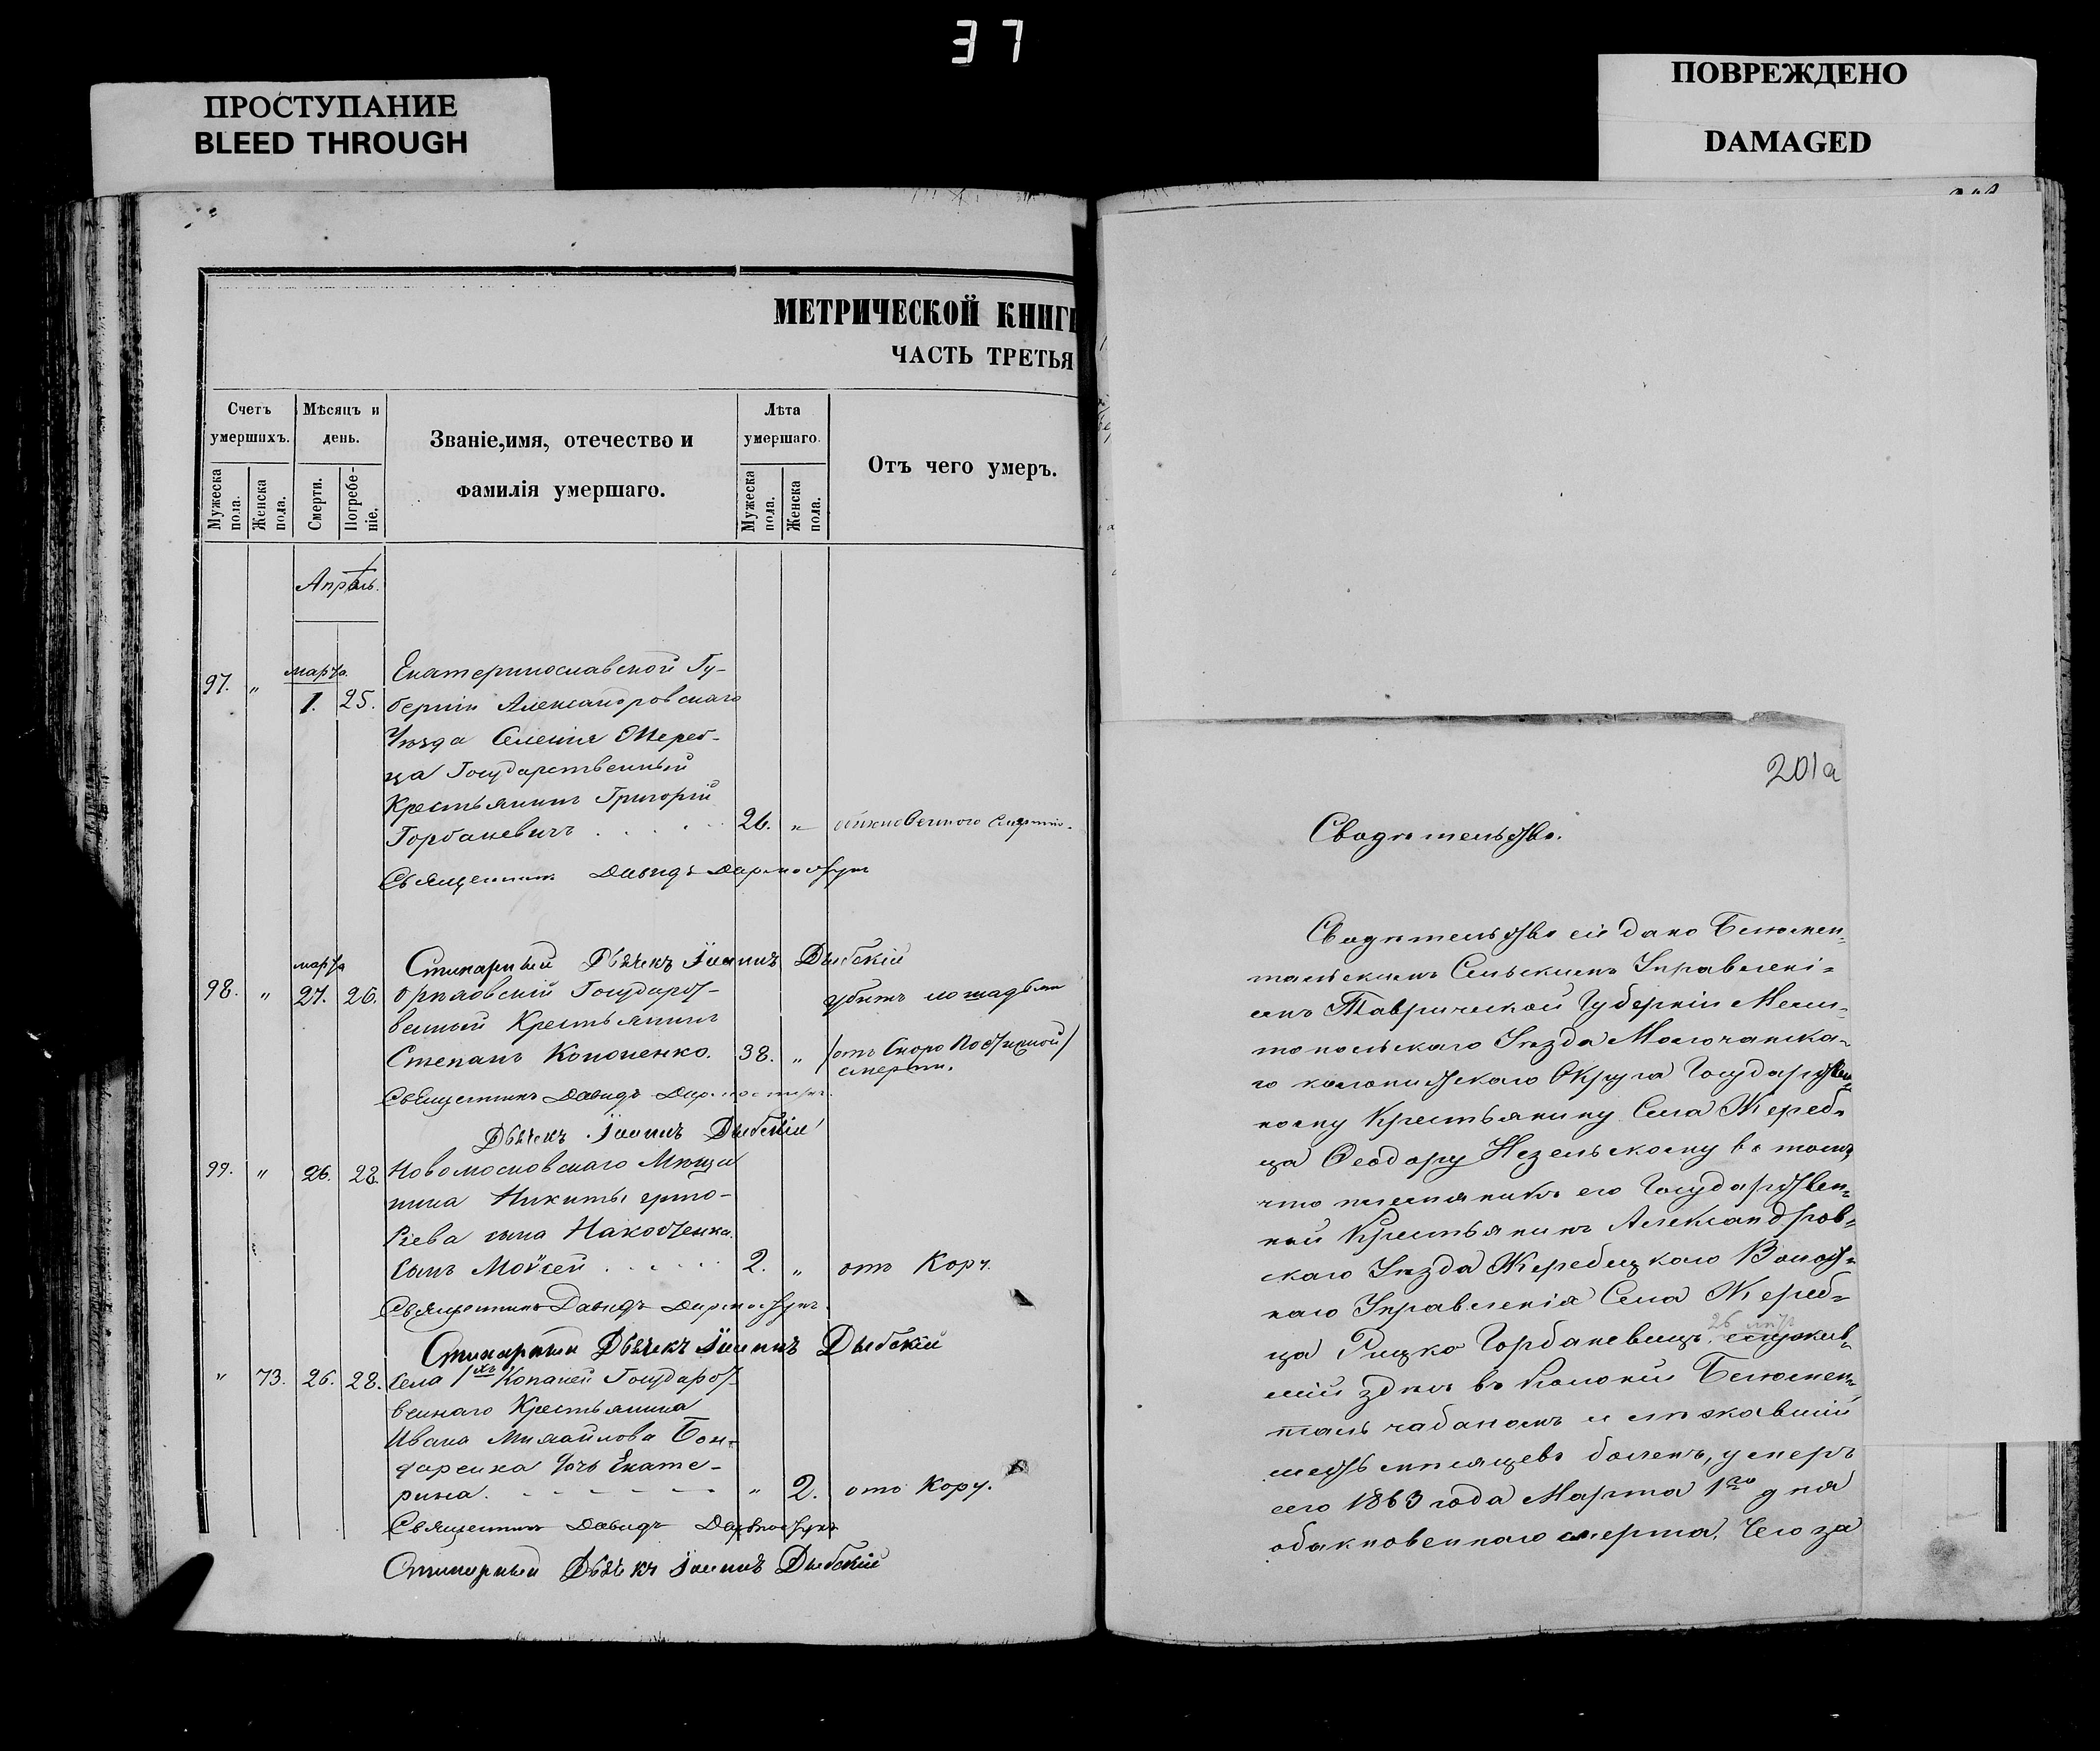 37
ПРОСТУПАНИЕ
BLEED THROUGH
ПОВРЕЖДЕНО
DAMAGED
МЕТРИЧЕСКОЙ КНИГИ
ЧАСТЬ ТРЕТЬЯ
Счетъ умершихъ.
Мужеска пола.
Женска пола.
Мѣсяцъ и день.
Смерти.
Погребе-
ніе.
Званіе, имя, отечество и
фамилія умершаго.
Лѣта умершаго.
Мужеска пола.
Женска пола.
Отъ чего умеръ.
Апрѣль.
97. „ марта 1. 25. Екатеринославской Гу-
берніи Александровскаго
Уѣзда Селенія Жереб-
ца Государственный
Крестьянинъ Григорій
Горбаневичъ . . . . 26. „ обыкновенного смертію.
Священникъ Давидъ
Стихарный Дьячекъ Іоаннъ Дыбскій
98. „ марта 24. 26. Орѣховскій Государст-
венный Крестьянинъ
Степанъ Кононенко. 38. „ убитъ лошадьми
(отъ Скоро Постижной)
смерти.
Священникъ Давидъ
Дьячекъ Іоаннъ Дыбскій
99. „ 26. 28. Новомосковскаго Мѣща
нина Никиты
сына
сынъ Моѵсей . . . . . 2. „ отъ Корч.
Священникъ Давидъ
Стихарный Дьячекъ Іоаннъ Дыбскій
„ 73. 26. 28. Села 1хъ Копаней Государст-
веннаго Крестьянина
Ивана Михайлова Бон-
даренка дочь Екате-
рина. - - - - - - „ 2. отъ Корч.
Священникъ Давидъ
Стихарный Дьячекъ Іоаннъ Дыбскій
201а
Свидѣтельство.
Свидѣтельство сіе дано Блюмен-
тальскимъ Сельскимъ Управлені-
емъ Таврической Губерніи Мели-
топольскаго Уѣзда Молочанска-
го колонистскаго Округа Государствен
ному Крестьянину Села Жереб-
ца Феодору Незельскому въ томъ,
что племяникъ его Государствен-
ный Крестьянинъ Александров-
скаго Уѣзда Жеребецкаго Волост-
наго Управленія Села Жереб-
26 лѣтъ
ца Рицко Горбаневичъ, служив-
шій здѣсь въ Колоніи Блюмен-
таль чабаномъ и лѣжавшій
шесть мѣсяцевъ боленъ, умеръ
сего 1863 года Марта 1го дня
обыкновенного смерта. Чего за